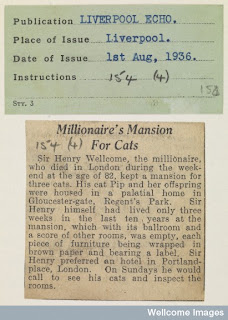 Publication LIVERPOOL ECHO.
Place of Issue Liverpool.
Date of Issue 1st Aug, 1936.
Instructions 154 (4)
158
Sty. 3
Millionaire's Mansion
154 (4) For Cats
Sir Henry Wellcome, the millionaire,
who died in London during the week-
end at the age of 82, kept a mansion for
three cats. His cat Pip and her offspring
were housed in a palatial home in
Gloucester-gate, Regent's Park. Sir
Henry himself had lived only three
weeks in the last ten years at the
mansion, which with its ballroom and
a score of other rooms, was empty, each
piece of furniture being wrapped in
brown paper and bearing a label. Sir
Henry preferred an hotel in Portland-
place, London. On Sundays he would
call to see his cats and inspect the
rooms.
Wellcome Images